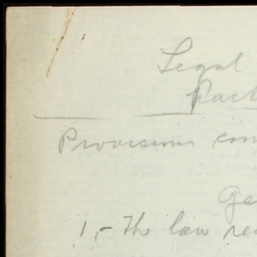 Legal
Provisions con
Ge
1,- The law re